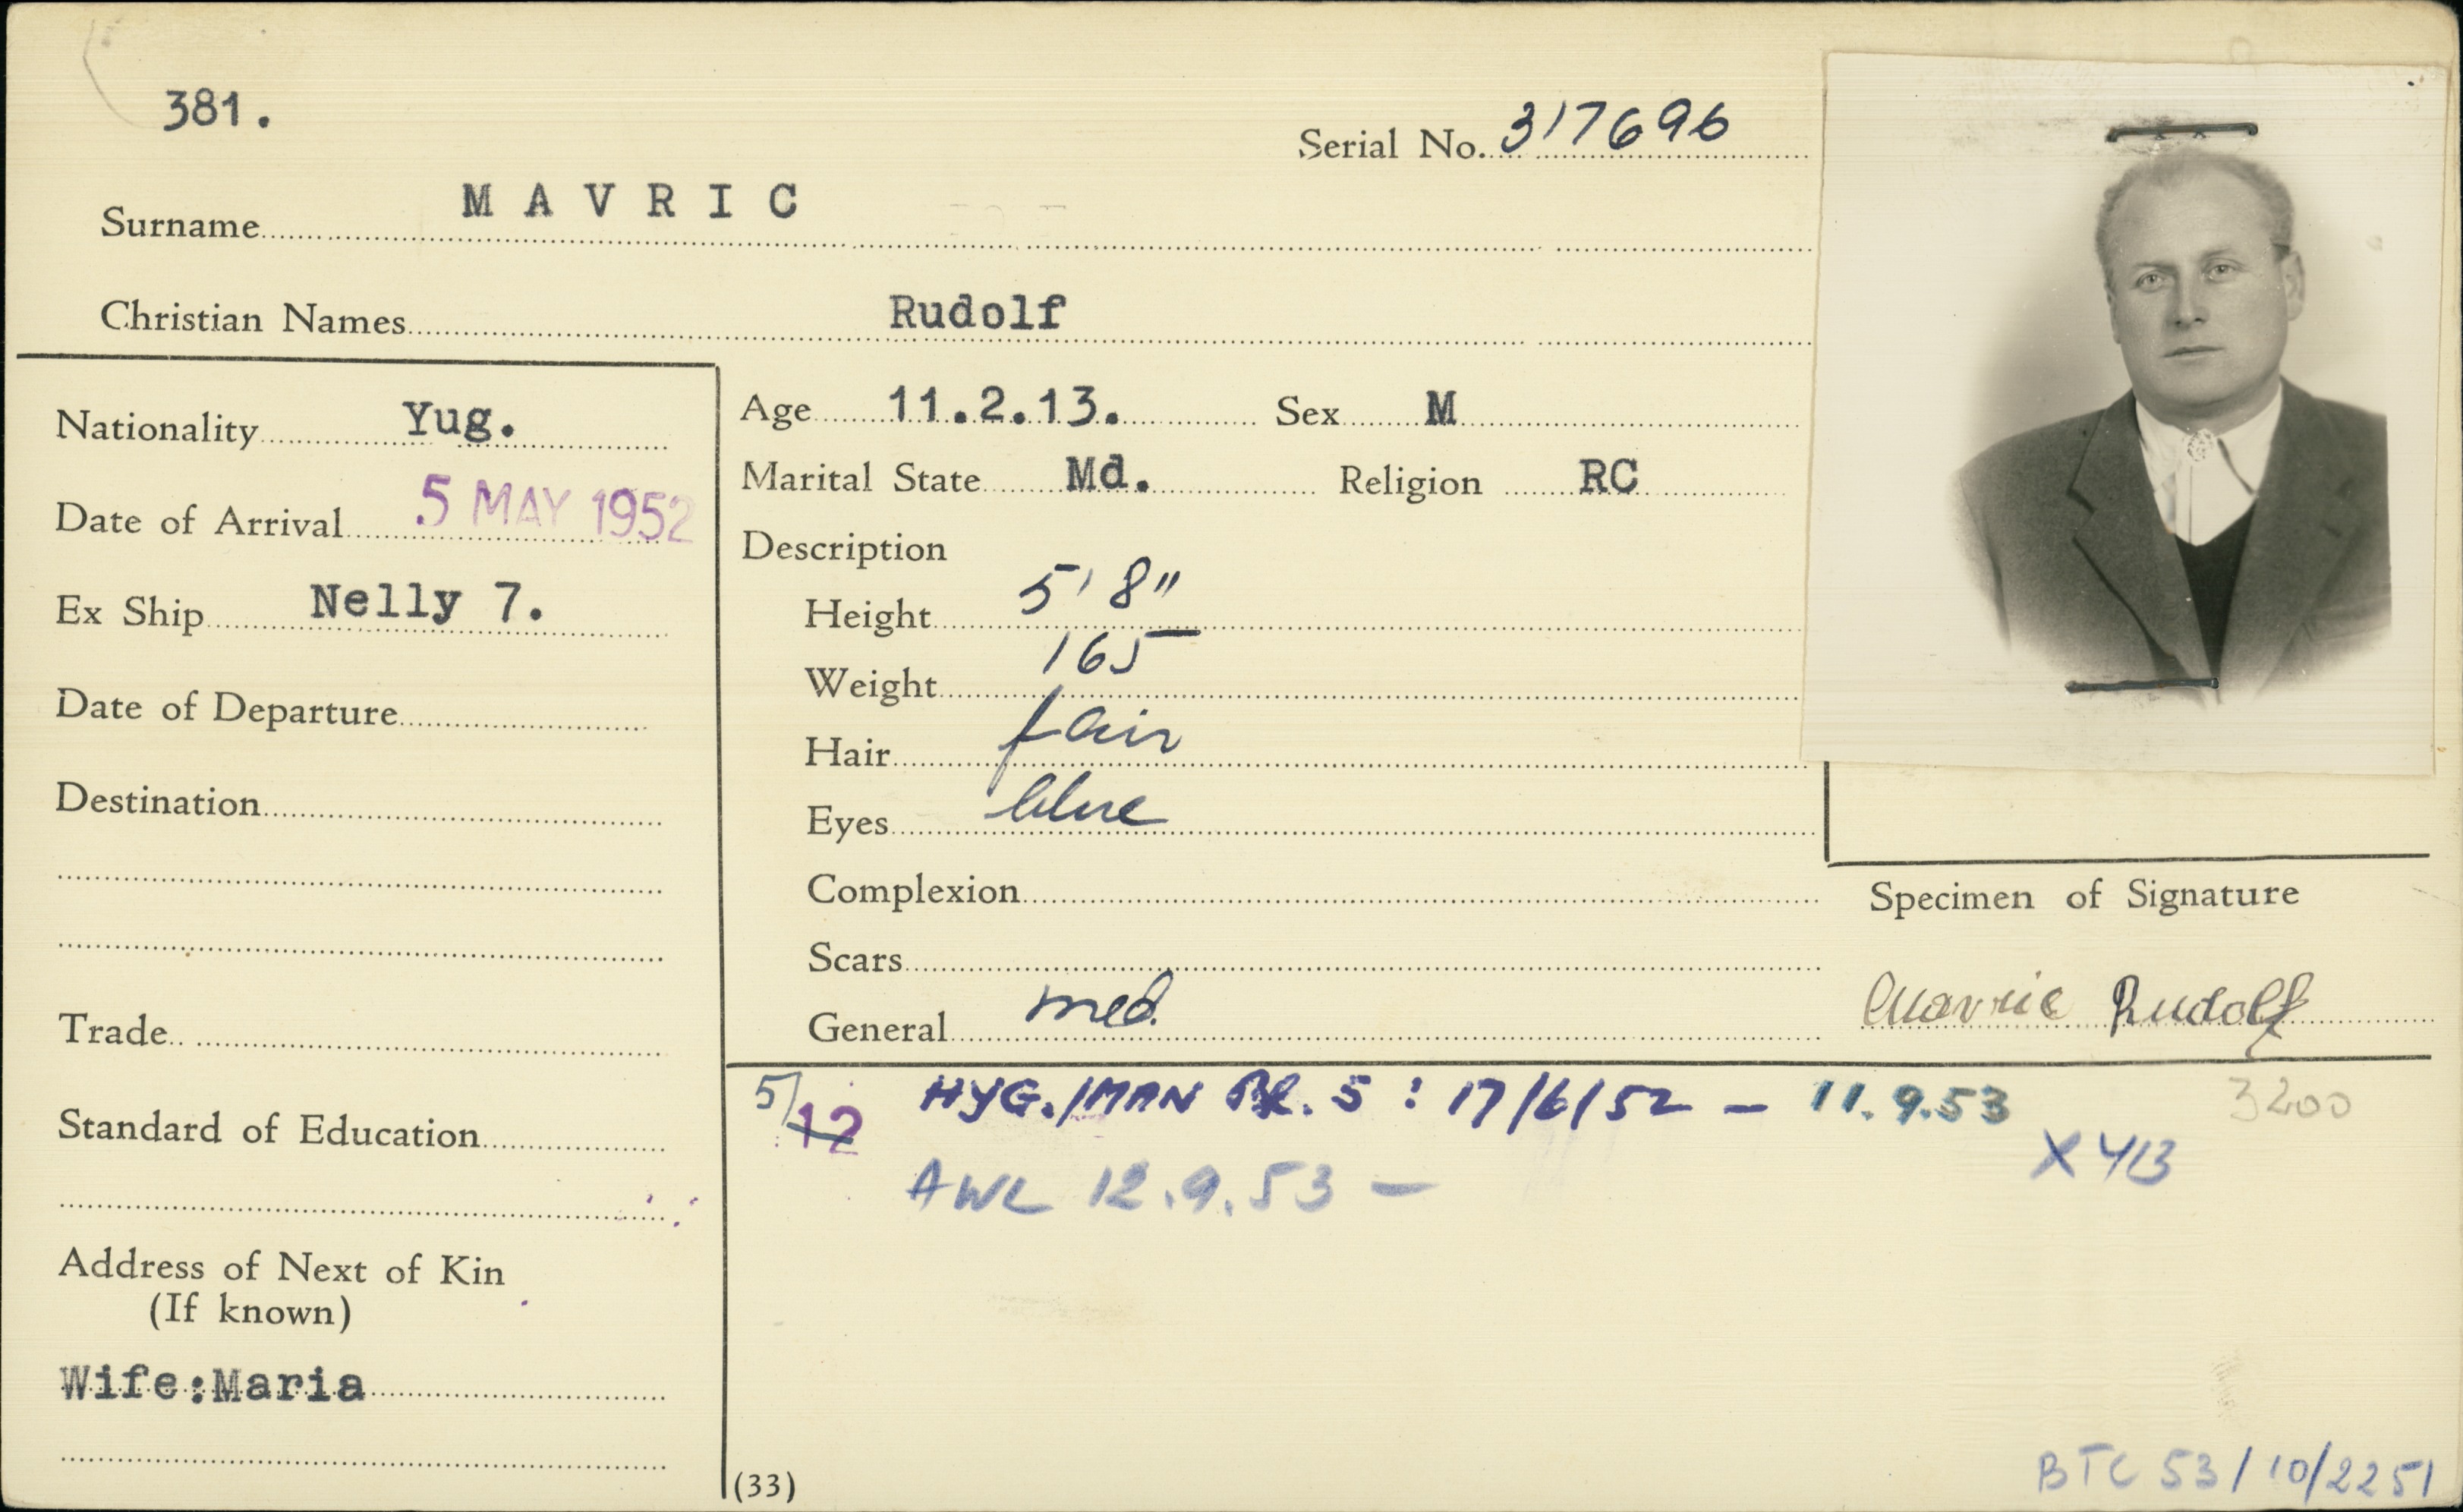 381.
Serial No. 317696
Surname MAVRIC
Christian Names Rudolf
Nationality Yug.
Date of Arrival 5 MAY 1952
Ex Ship Nelly 7.
Date of Departure
Destination
Trade
Standard of Education
Address of Next of Kin
(If known)
Wife:Maria
Age 11.2.13. Sex M
Marital State Md. Religion RC
Description
Height 5' 8"
Weight 165
Hair fair
Eyes blue
Complexion
Scars
General med.
Specimen of Signature
Mavric Rudolf
5/12 HYG./MAN BL. 5 : 17/6/52 – 11.9.53 3200
X 413
AWL 12.9.53 –
(33)
BTC 53/10/2251